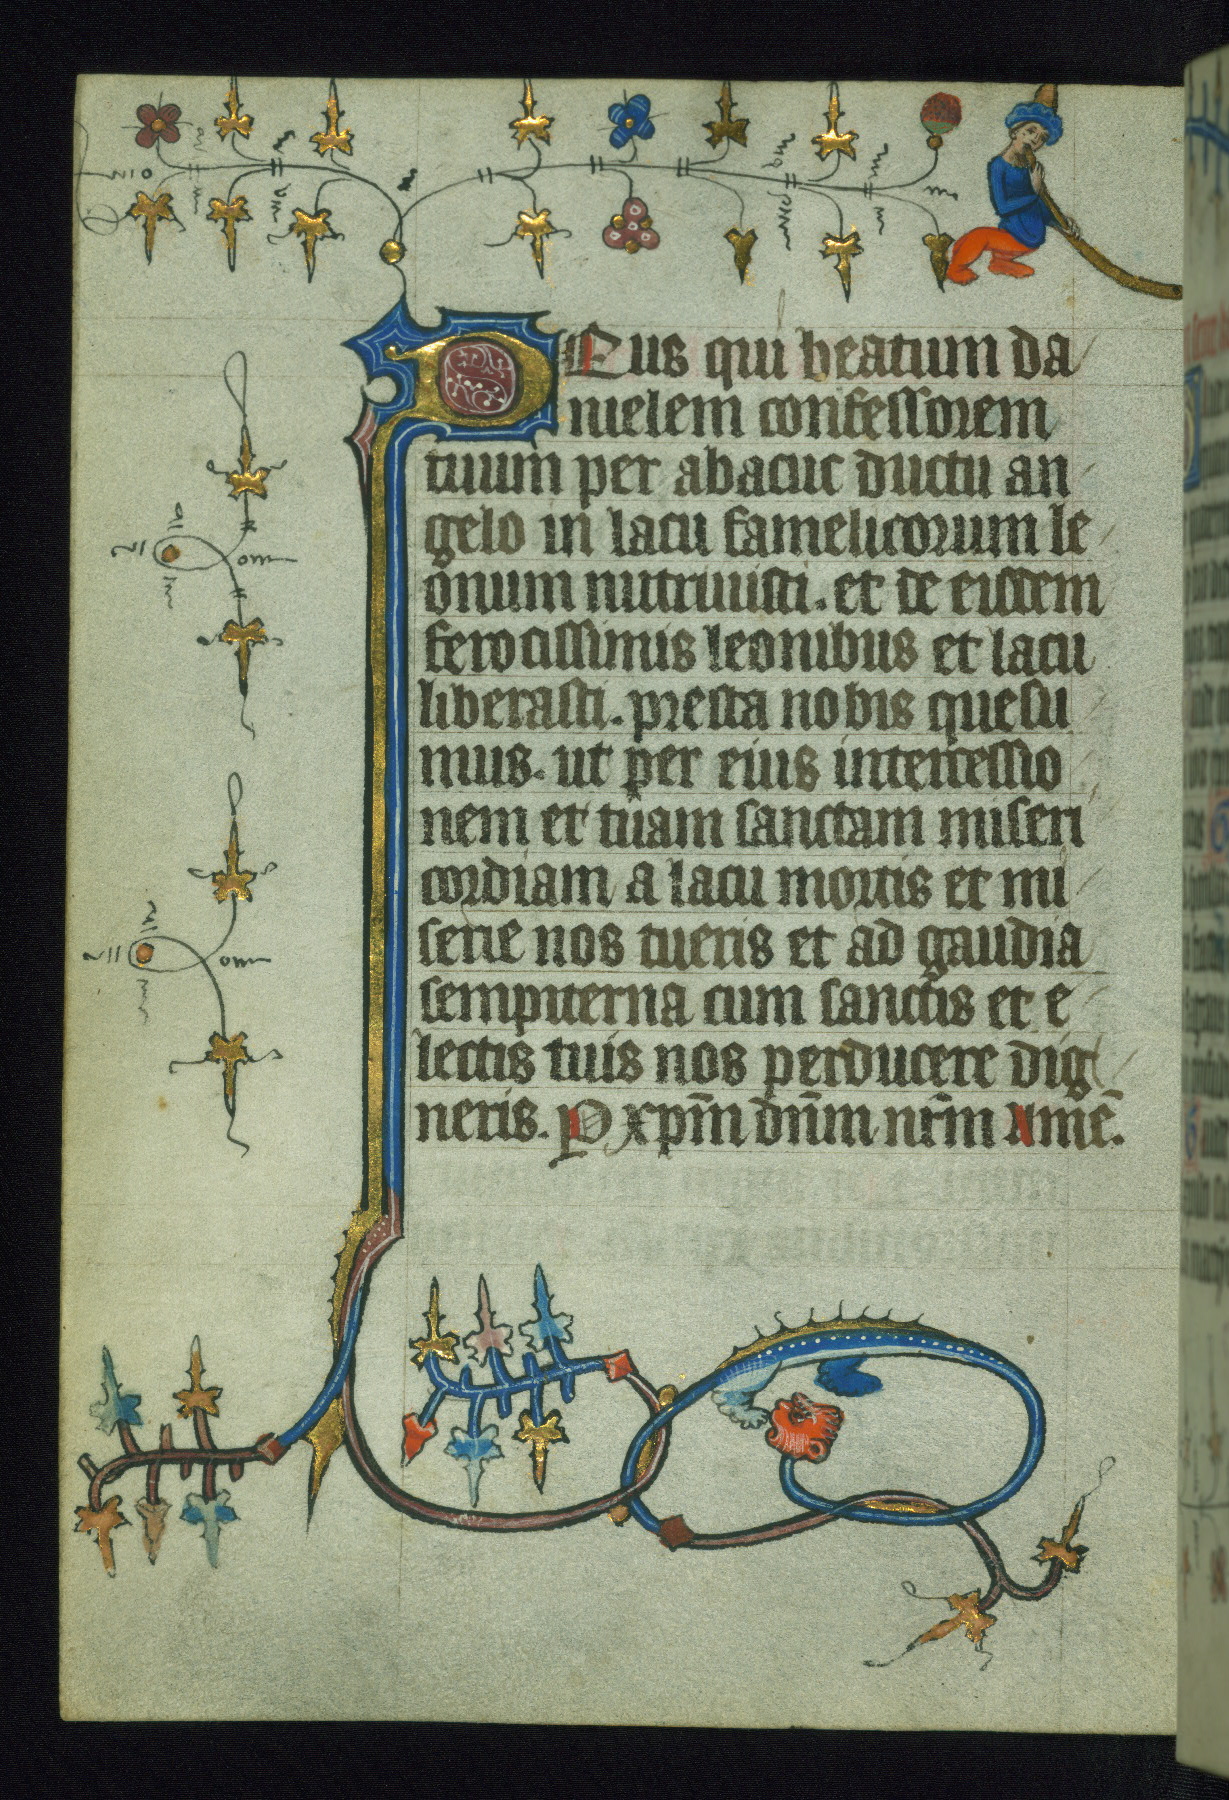 Deus qui beatum da
nielem confessorem
tuum per abacuc ductu an
gelo in lacu famelicorum le
onum nutriuisti. et de eisdem
ferocissimis leonibus et lacu
liberasti. presta nobis quesu
mus. ut per eius intercessio
nem et tuam sanctam miseri
cordiam a lacu mortis et mi
serie nos tueris et ad gaudia
sempiterna cum sanctis et e
lectis tuis nos perducere dig
neris. P xpm̄ dn̄m nr̄m Amē.